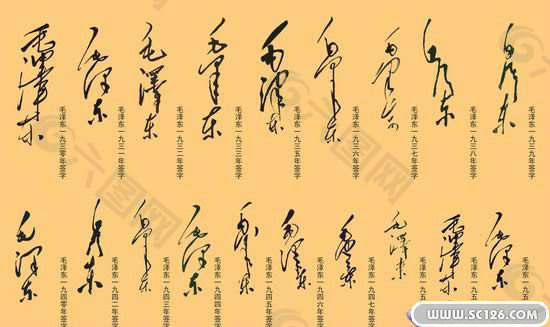 毛泽东
毛泽东一九三零年签字
毛泽东
毛泽东一九三一年签字
毛泽东
毛泽东一九三二年签字
毛泽东
毛泽东一九三三年签字
毛泽东
毛泽东一九三五年签字
毛泽东
毛泽东一九三六年签字
毛泽东
毛泽东一九三七年签字
毛泽东
毛泽东一九三八年签字
毛泽东
毛泽东一九三九年签字
毛泽东
毛泽东一九四零年签字
毛泽东
毛泽东一九四二年签字
毛泽东
毛泽东一九四三年签字
毛泽东
毛泽东一九四四年签字
毛泽东
毛泽东一九四五年签字
毛泽东
毛泽东一九四六年签字
毛泽东
毛泽东一九四七年签字
毛泽东
毛泽东一九五
毛泽东
毛泽东一九五
毛泽东
毛泽东一九五
六图网
WWW.SC126.COM